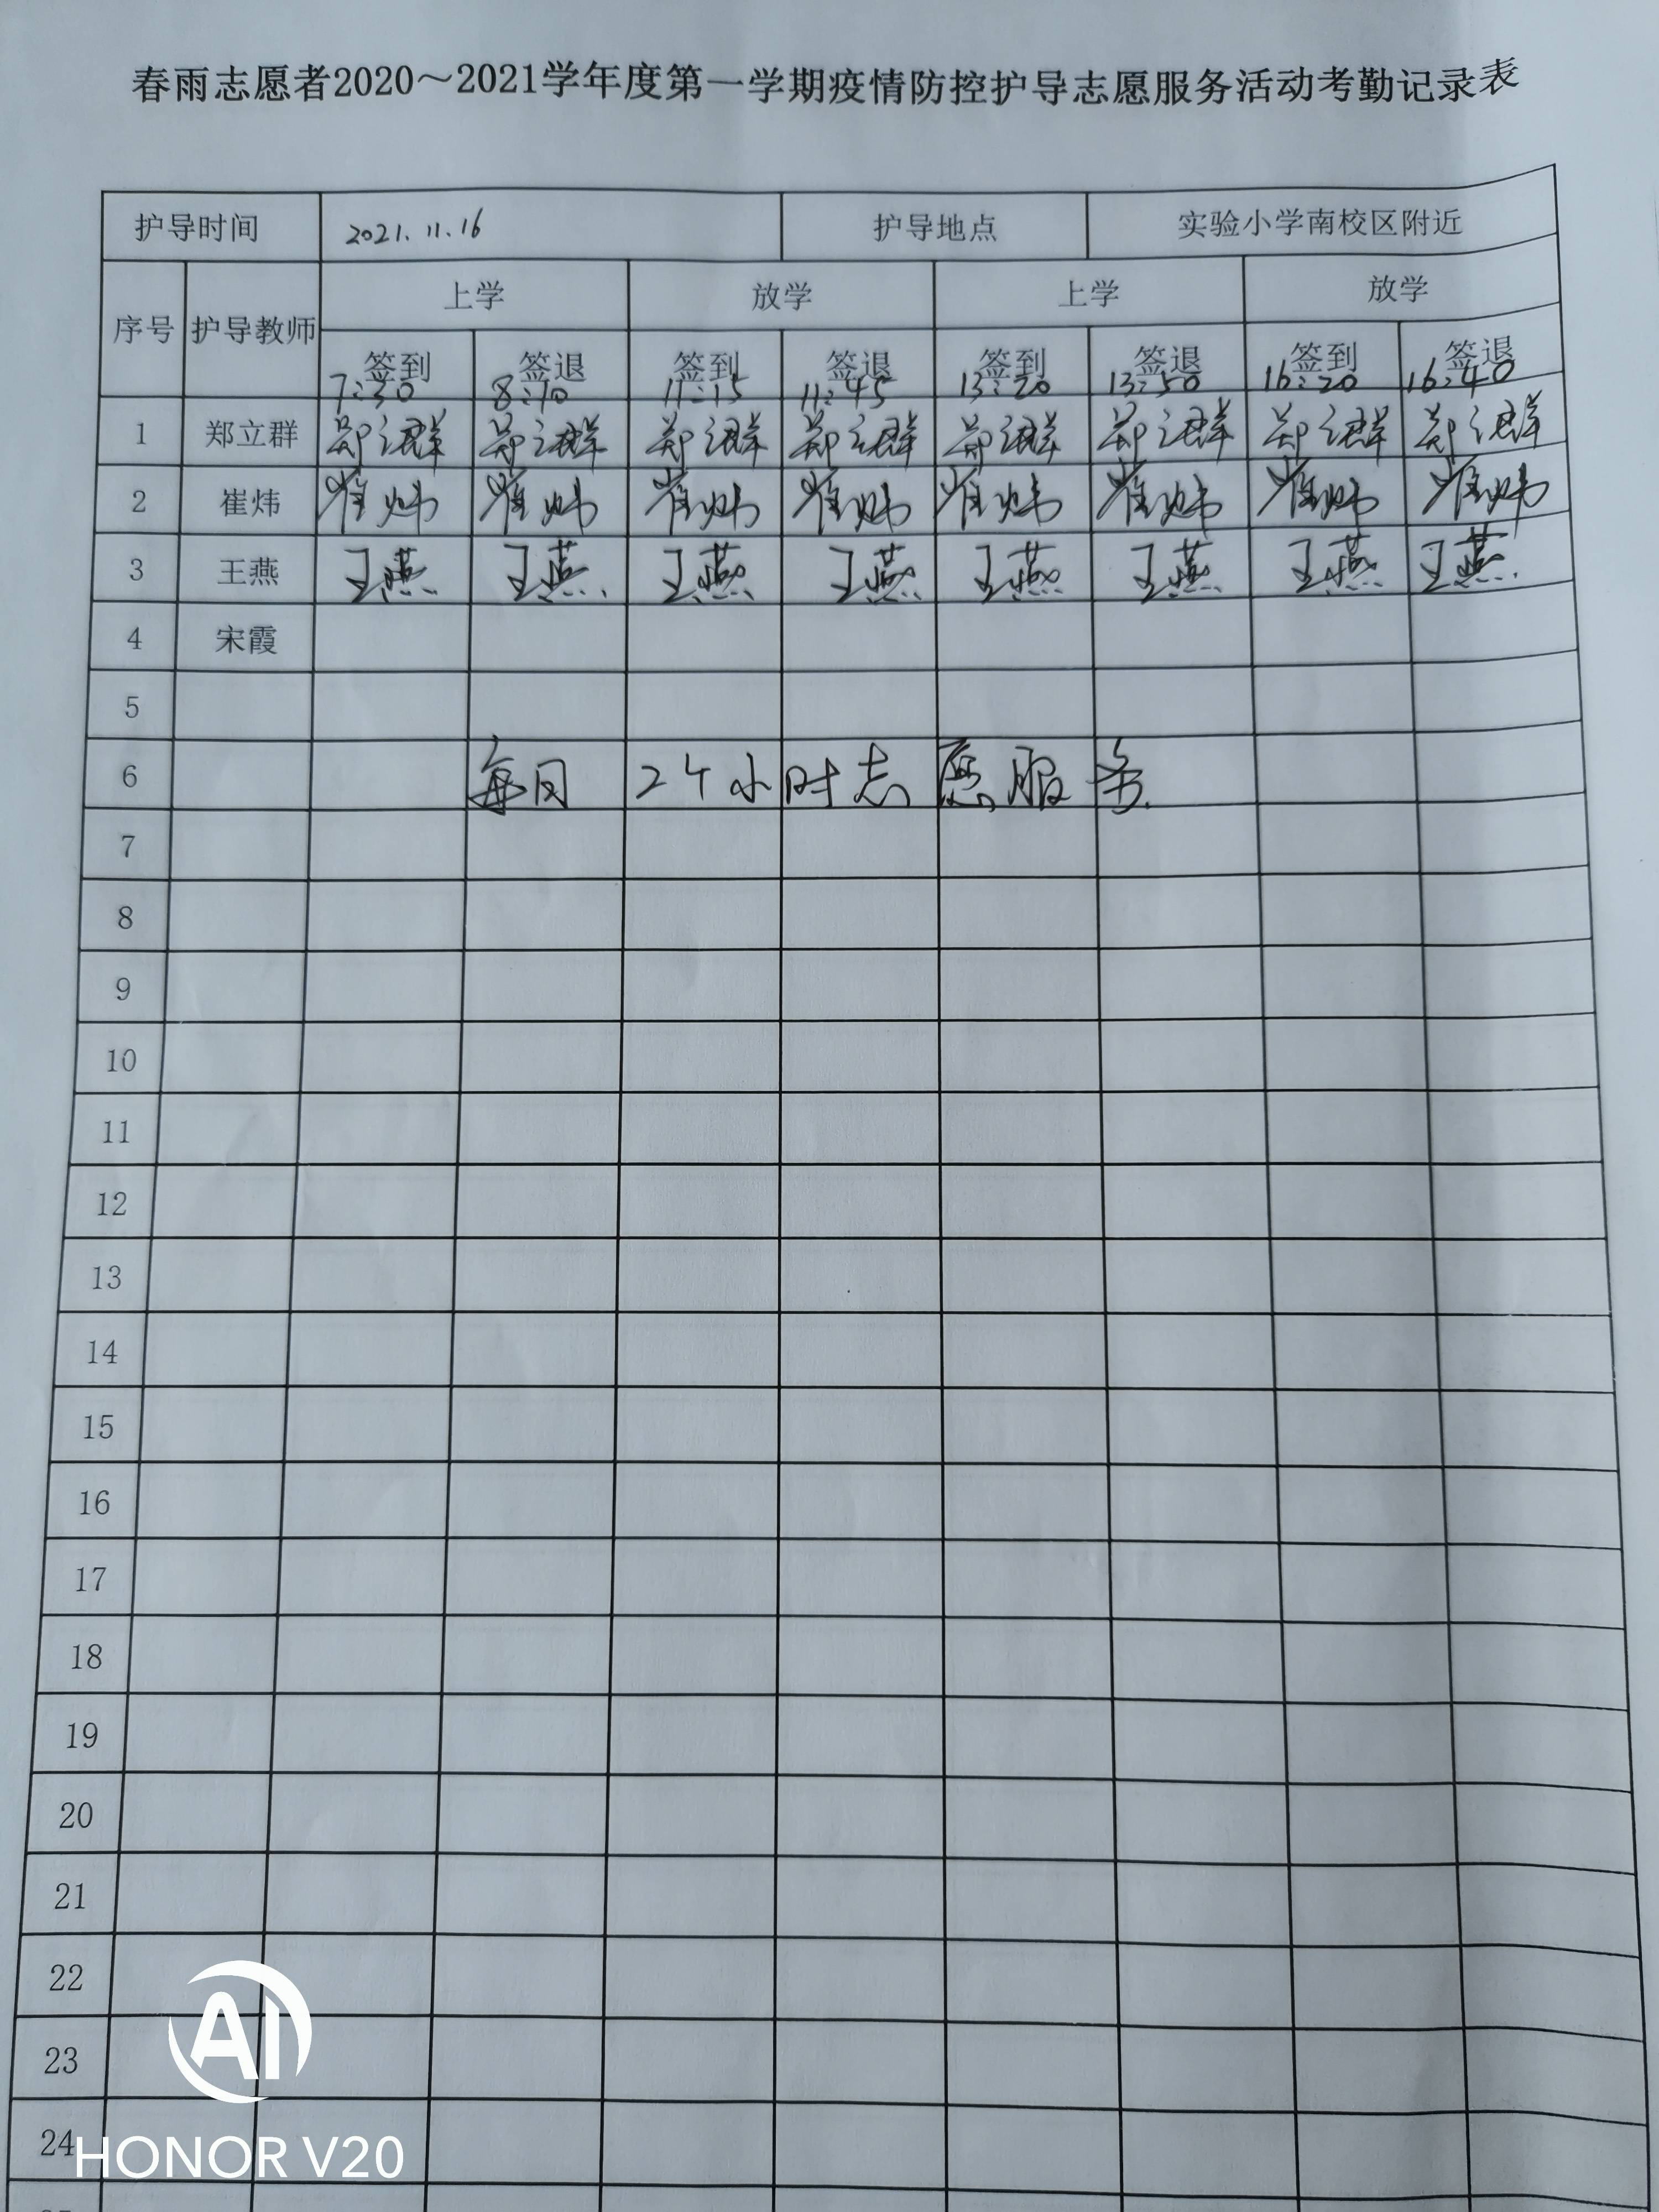 春雨志愿者2020～2021学年度第一学期疫情防控护导志愿服务活动考勤记录表
护导时间 2021.11.16 护导地点 实验小学南校区附近
序号 护导教师 上学 放学 上学 放学
签到 签退 签到 签退 签到 签退 签到 签退
7:30 8:10 11:15 11:45 13:20 13:50 16:20 16:40
1 郑立群 郑立群 郑立群 郑立群 郑立群 郑立群 郑立群 郑立群 郑立群
2 崔炜 崔炜 崔炜 崔炜 崔炜 崔炜 崔炜 崔炜 崔炜
3 王燕 王燕 王燕 王燕 王燕 王燕 王燕 王燕 王燕
4 宋霞
5
6 每日 24小时志愿服务.
7
8
9
10
11
12
13
14
15
16
17
18
19
20
21
22
23
24
AI
HONOR V20